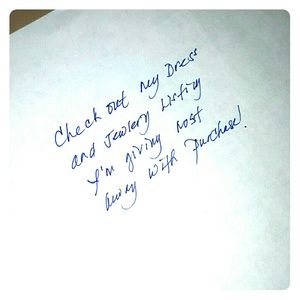 Check out my Dress
and Jewlery Listing
I'm giving most
away with purchase!